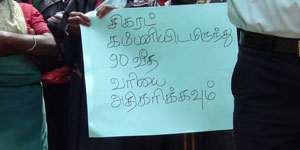 சிகரட்
கம்பனியிடமிருந்து
90 வீத
வரியை
அதிகரிக்கவும்